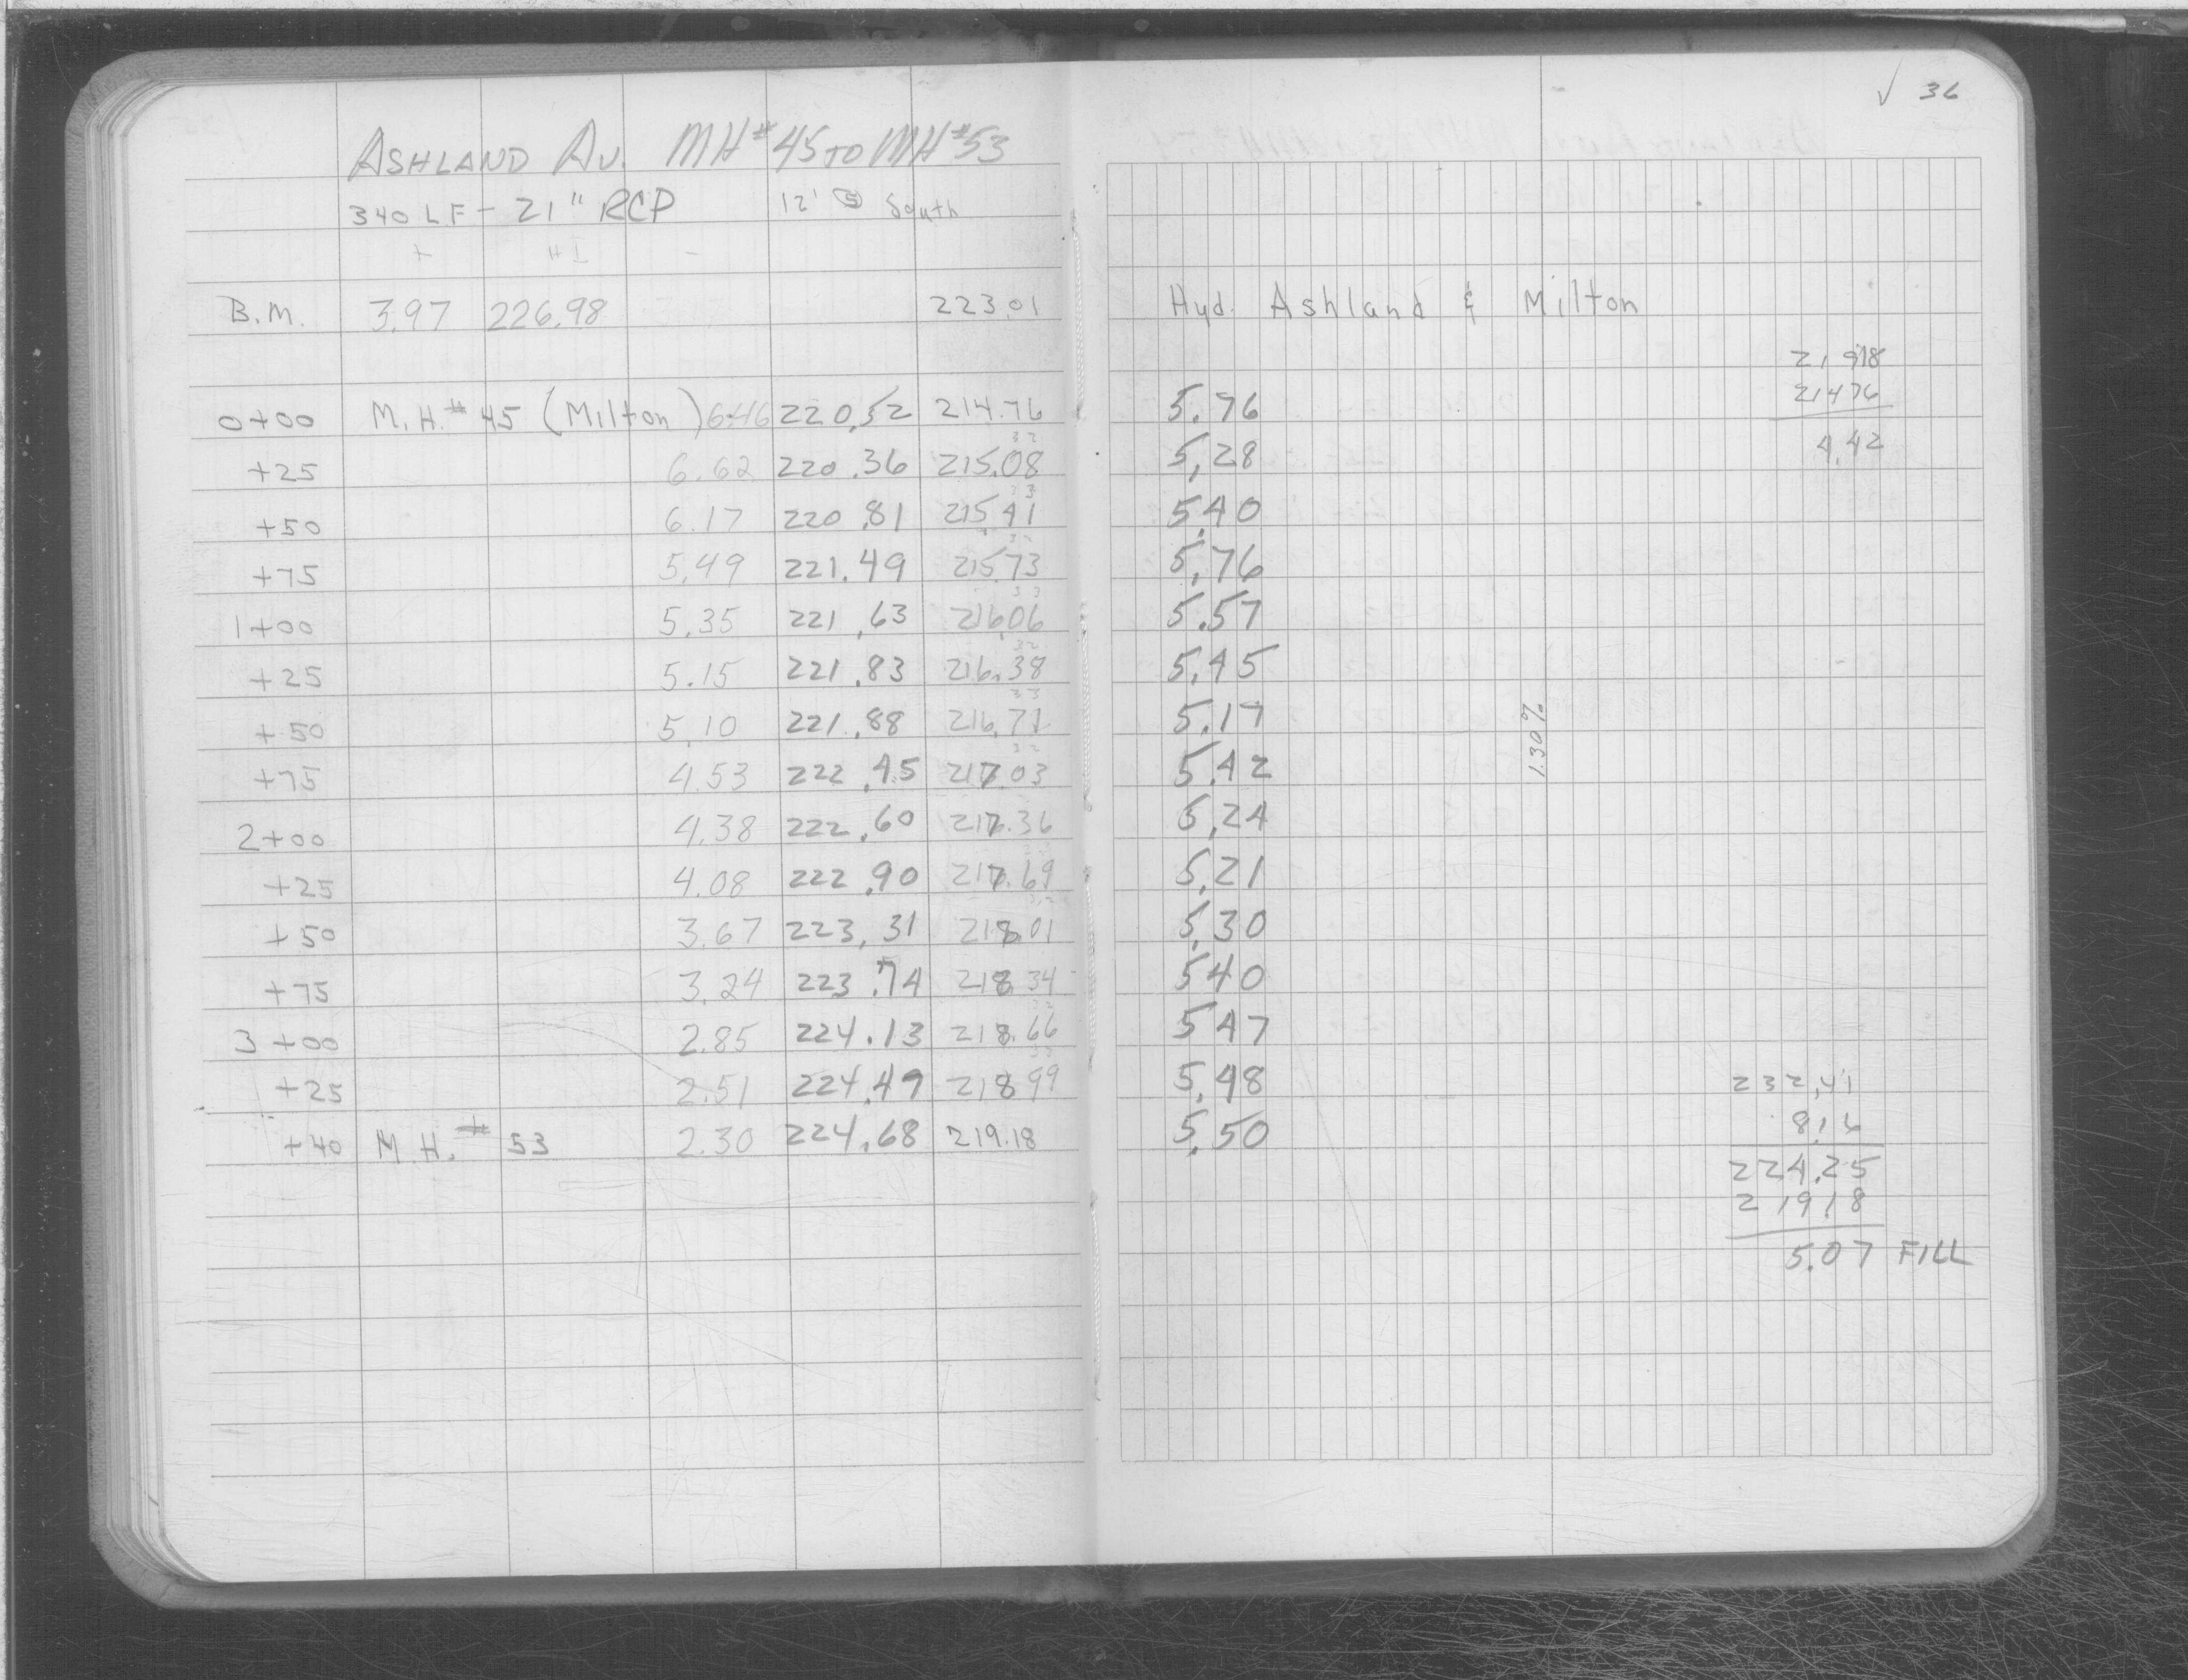 ASHLAND AV. MH#45 TO MH#53
340 LF - 21" RCP 12' South
+ HI -
B.M. 3.97 226.98 223.01
0+00 M.H.#45 (Milton) 6.46 220.52 214.76
+25 6.62 220.36 215.08
+50 6.17 220.81 215.41
+75 5.49 221.49 215.73
1+00 5.35 221.63 216.06
+25 5.15 221.83 216.38
+50 5.10 221.88 216.71
+75 4.53 222.45 217.03
2+00 4.38 222.60 217.36
+25 4.08 222.90 217.69
+50 3.67 223.31 218.01
+75 3.24 223.74 218.34
3+00 2.85 224.13 218.66
+25 2.51 224.49 218.99
+40 M.H.# 53 2.30 224.68 219.18
✓ 36
Hyd. Ashland & Milton
21918
5.76 21476
5.28 4.42
5.40
5.76
5.57
5.45
5.17 1.30%
5.42
5.24
5.21
5.30
5.40
5.47
5.48 232.41
5.50 8.16
224.25
219.18
5.07 FILL